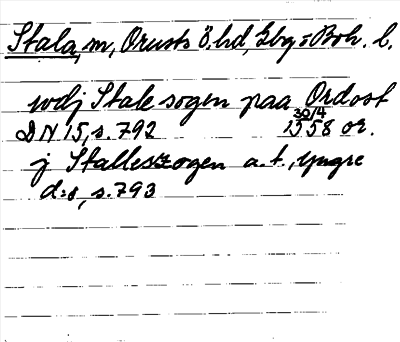 Stala, m, Orusts ö. hd, Gbg o Boh. l.
wdj Stale sogen paa Ordost
DN 15, s. 792 30/4 1558 or.
j Stalleszogen a. t., yngre
d:o, s. 793